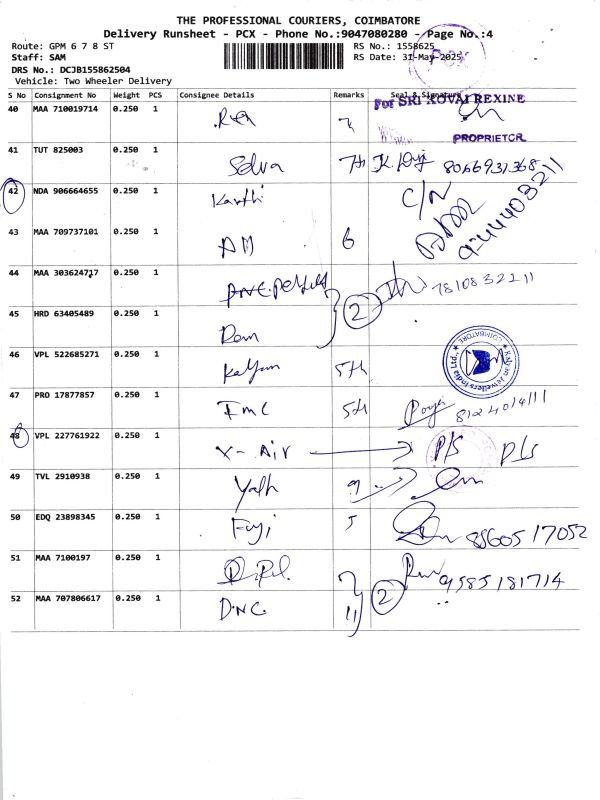 THE PROFESSIONAL COURIERS, COIMBATORE
Delivery Runsheet - PCX - Phone No.:9047080280 - Page No.:4
Route: GPM 6 7 8 ST
RS No.: 1558625
Staff: SAM
RS Date: 31-May-2025
DRS No.: DCJB155862504
Vehicle: Two Wheeler Delivery
S No Consignment No Weight PCS Consignee Details Remarks Seal & Signature
For SRI KOVAI REXINE
40 MAA 710019714 0.250 1
PROPRIETOR
41 TUT 825003 0.250 1 Selva 7th
42 NDA 906664655 0.250 1 Karthi C/N
43 MAA 709737101 0.250 1 AM 6
44 MAA 303624717 0.250 1 2 7810832211
45 HRD 63405489 0.250 1 Ram
46 VPL 522685271 0.250 1 Kalyan 5th
Kalyan Jewellers India Ltd., ★ COIMBATORE ★
47 PRO 17877857 0.250 1 FMC 5th
48 VPL 227761922 0.250 1 X-Air P/S P/S
49 TVL 2910938 0.250 1 Yash 9
50 EDQ 23898345 0.250 1 Fuji 5 8560517052
51 MAA 7100197 0.250 1 9585181714
52 MAA 707806617 0.250 1 DNC 11 2